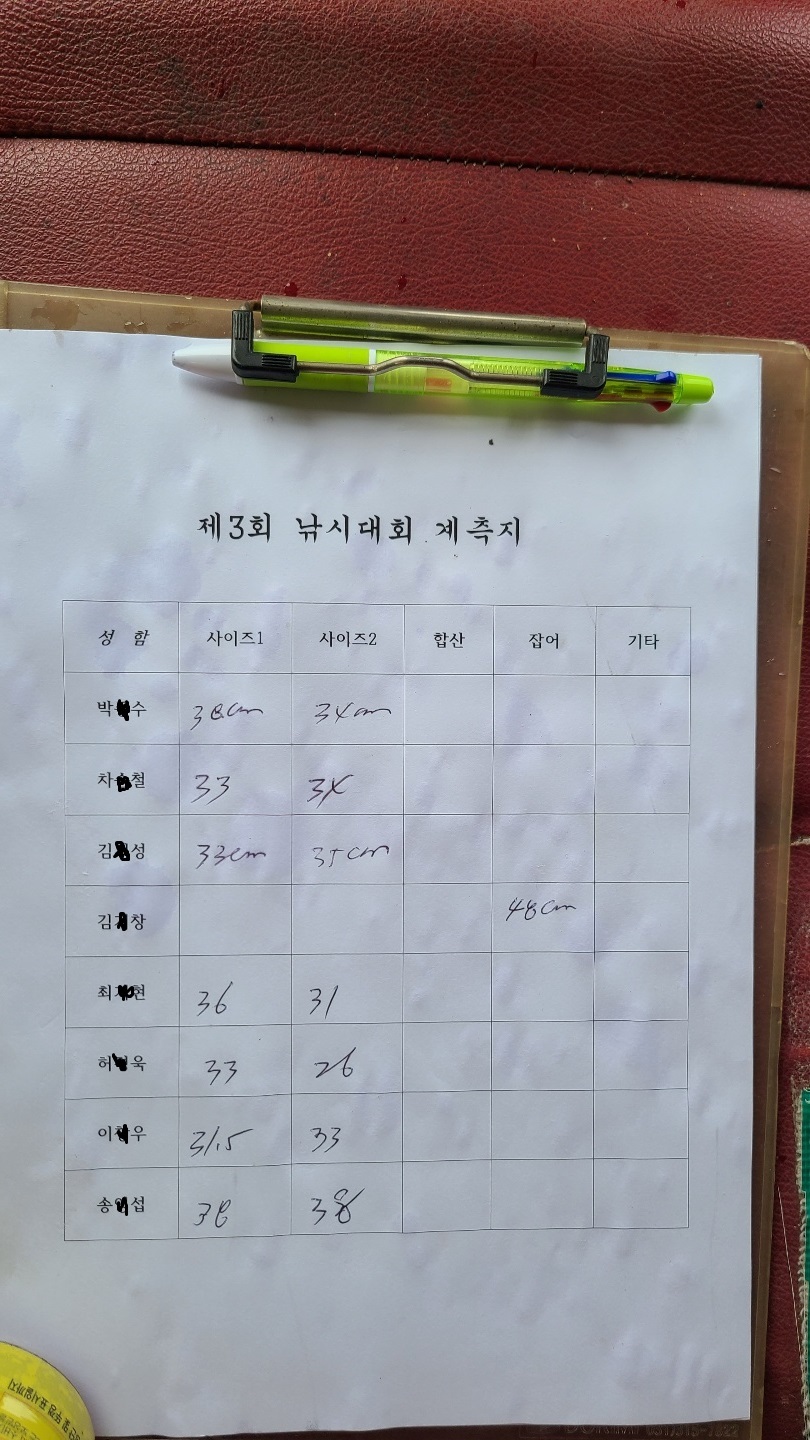 제3회 낚시대회 계측지
성 함 사이즈1 사이즈2 합산 잡어 기타
박 수 38cm 34cm
차 철 33 34
김 성 33cm 35cm
김 창 48cm
최 현 36 31
허 욱 33 26
이 우 31.5 33
송 섭 38 38